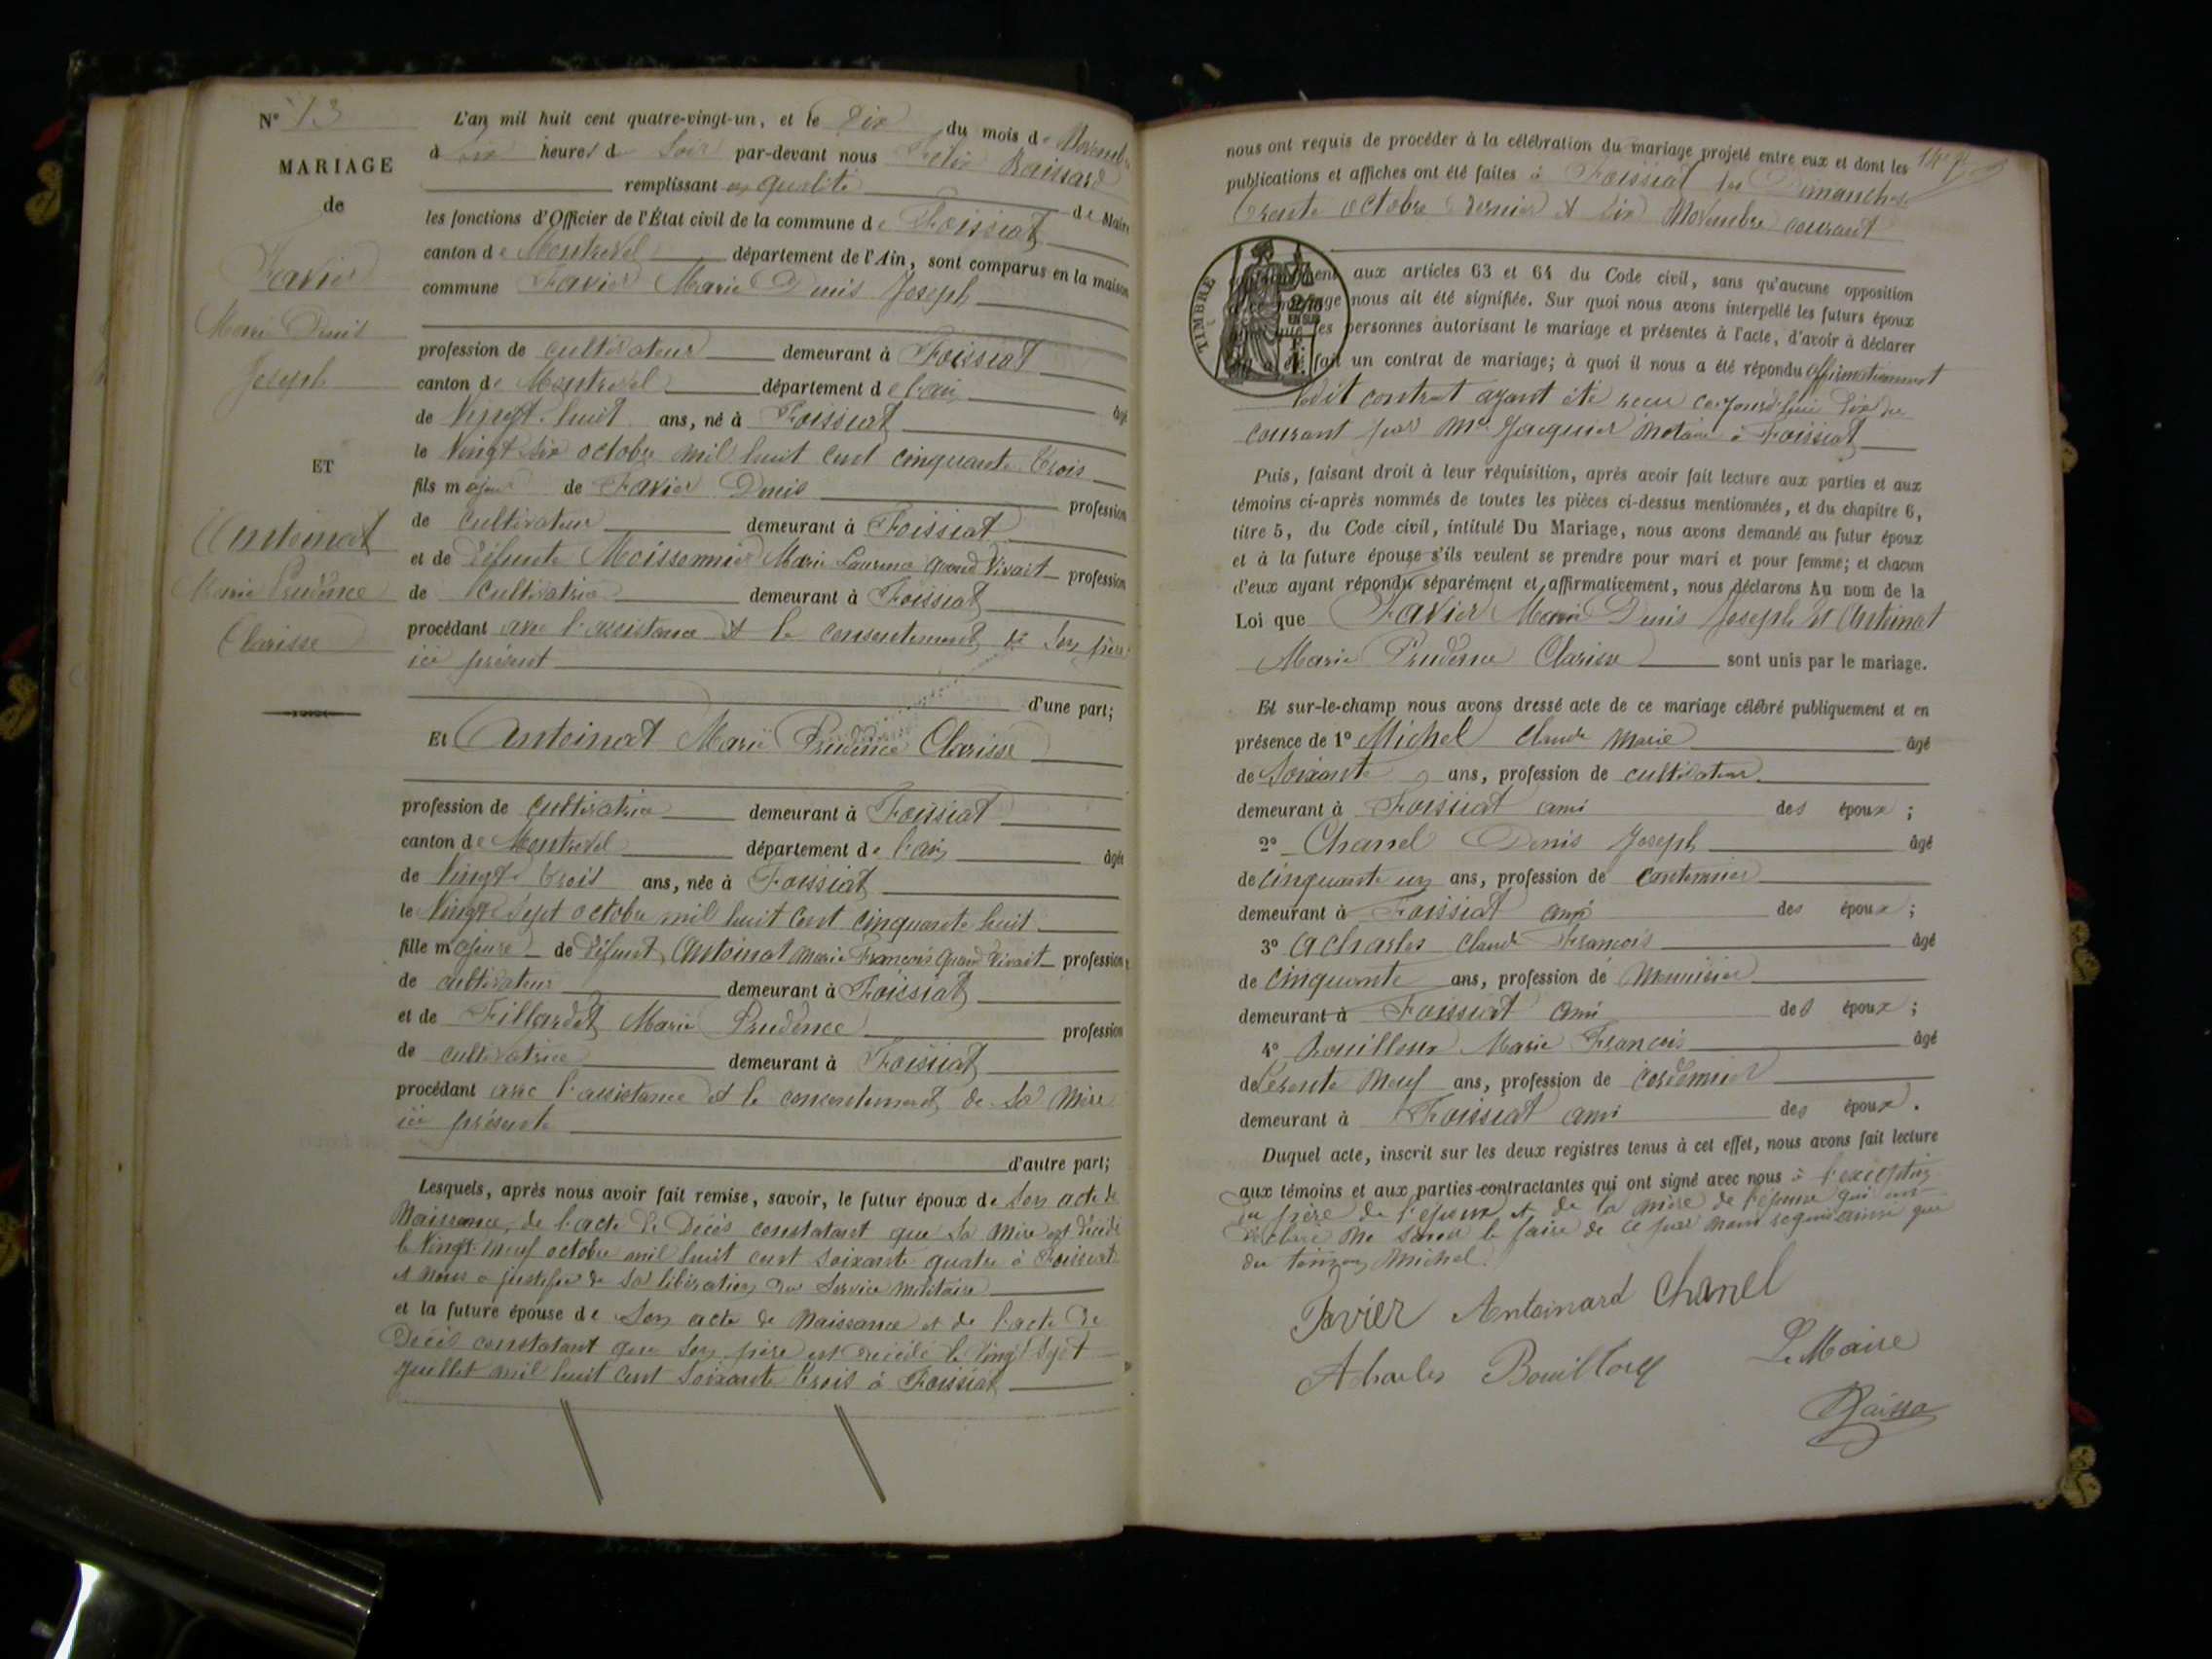 N° 13
MARIAGE
de
Favier
Marie Denis
Joseph
ET
Antoinat
Marie Prudence
Clarisse
L'an mil huit cent quatre-vingt-un, et le Dix du mois de Novembre
à six heures du Soir par-devant nous Félix Raissard
remplissant en qualité de Maire
les fonctions d'Officier de l'État civil de la commune de Foissiat
canton de Montrevel département de l'Ain, sont comparus en la maison
commune Favier Marie Denis Joseph
profession de cultivateur demeurant à Foissiat
canton de Montrevel département de l'ain âgé
de Vingt-huit ans, né à Foissiat
le Vingt six octobre mil huit cent cinquante trois
fils majeur de Favier Denis profession
de cultivateur demeurant à Foissiat
et de défunte Moissonnier Marie Laurence quand Vivait profession
de Cultivatrice demeurant à Foissiat
procédant avec l'assistance et le consentement de son père
ici présent
d'une part;
Et Antoinat Marie Prudence Clarisse
profession de cultivatrice demeurant à Foissiat
canton de Montrevel département de l'ain âgée
de Vingt trois ans, née à Foissiat
le Vingt Sept octobre mil huit cent cinquante huit
fille majeure de défunt Antoinat Marie François quand Vivait profession
de cultivateur demeurant à Foissiat
et de Fillardet Marie Prudence profession
de cultivatrice demeurant à Foissiat
procédant avec l'assistance et le consentement de Sa Mère
ici présente
d'autre part;
Lesquels, après nous avoir fait remise, savoir, le futur époux de Son acte de
Naissance, de l'acte de Décès constatant que Sa Mère est décédée
le Vingt-neuf octobre mil huit cent soixante quatre à Foissiat
et nous a justifié de Sa libération du Service militaire
et la future épouse de Son acte de Naissance et de l'acte de
Décès constatant que Son père est décédé le Vingt Sept
Juillet mil huit cent soixante trois à Foissiat
nous ont requis de procéder à la célébration du mariage projeté entre eux et dont les
publications et affiches ont été faites à Foissiat les Dimanches
trente octobre dernier et six Novembre courant
TIMBRE
aux articles 63 et 64 du Code civil, sans qu'aucune opposition
nous ait été signifiée. Sur quoi nous avons interpellé les futurs époux
les personnes autorisant le mariage et présentes à l'acte, d'avoir à déclarer
fait un contrat de mariage; à quoi il nous a été répondu affirmativement
ledit contrat ayant été reçu ce jourd'hui dix du
courant par Me Jacquier Notaire à Foissiat
Puis, faisant droit à leur réquisition, après avoir fait lecture aux parties et aux
témoins ci-après nommés de toutes les pièces ci-dessus mentionnées, et du chapitre 6,
titre 5, du Code civil, intitulé Du Mariage, nous avons demandé au futur époux
et à la future épouse s'ils veulent se prendre pour mari et pour femme; et chacun
d'eux ayant répondu séparément et affirmativement, nous déclarons Au nom de la
Loi que Favier Marie Denis Joseph et Antoinat
Marie Prudence Clarisse sont unis par le mariage.
Et sur-le-champ nous avons dressé acte de ce mariage célébré publiquement et en
présence de 1° Michel Claude Marie âgé
de Soixante ans, profession de cultivateur
demeurant à Foissiat ami des époux;
2° Chanel Denis Joseph âgé
de cinquante un ans, profession de cantonnier
demeurant à Foissiat ami des époux;
3° Acharles Claude François âgé
de cinquante ans, profession de Menuisier
demeurant à Foissiat ami des époux;
4° Bouilloux Marie François âgé
de trente Neuf ans, profession de cordonnier
demeurant à Foissiat ami des époux.
Duquel acte, inscrit sur les deux registres tenus à cet effet, nous avons fait lecture
aux témoins et aux parties contractantes qui ont signé avec nous à l'exception
du père de l'époux et de la mère de l'épouse qui ont
déclaré ne savoir le faire de ce par nous requis ainsi que
du témoin Michel.
Favier Antoinard Chanel
Acharles Bouilloux Le Maire